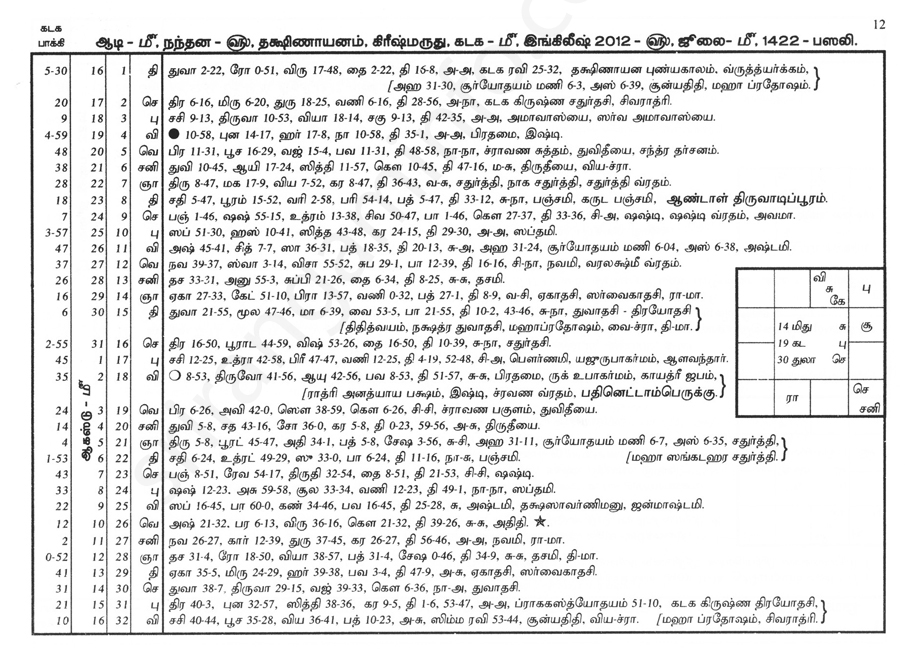 12
கடக
பாக்கி
ஆடி - மீ, நந்தன - ௵, தக்ஷிணாயனம், கிரீஷ்மருது, கடக - மீ, இங்கிலீஷ் 2012 - ௵, ஜூலை- மீ, 1422 - பஸலி.
5-30 16 1 தி துவா 2-22, ரோ 0-51, விரு 17-48, தை 2-22, தி 16-8, அ-அ, கடக ரவி 25-32, தக்ஷிணாயன புண்யகாலம், வ்ருத்த்யர்க்கம்,
[அஹ 31-30, சூர்யோதயம் மணி 6-3, அஸ் 6-39, சூன்யதிதி, மஹா ப்ரதோஷம்.]
20 17 2 செ திர 6-16, மிரு 6-20, துரு 18-25, வணி 6-16, தி 28-56, அ-நா, கடக கிருஷ்ண சதுர்தசி, சிவராத்ரி.
9 18 3 பு சசி 9-13, திருவா 10-53, வியா 18-14, சகு 9-13, தி 42-35, அ-அ, அமாவாஸ்யை, ஸர்வ அமாவாஸ்யை.
4-59 19 4 வி ● 10-58, புன 14-17, ஹர் 17-8, நா 10-58, தி 35-1, அ-அ, பிரதமை, இஷ்டி.
48 20 5 வெ பிர 11-31, பூச 16-29, வஜ் 15-4, பவ 11-31, தி 48-58, நா-நா, ச்ராவண சுத்தம், துவிதீயை, சந்த்ர தர்சனம்.
38 21 6 சனி துவி 10-45, ஆயி 17-24, ஸித்தி 11-57, கௌ 10-45, தி 47-16, ம-சு, திருதீயை, விய-ச்ரா.
28 22 7 ஞா திரு 8-47, மக 17-9, விய 7-52, கர 8-47, தி 36-43, வ-சு, சதுர்த்தி, நாக சதுர்த்தி, சதுர்த்தி வ்ரதம்.
18 23 8 தி சதி 5-47, பூரம் 15-52, வரி 2-58, பரி 54-14, பத் 5-47, தி 33-12, சு-நா, பஞ்சமி, கருட பஞ்சமி, ஆண்டாள் திருவாடிப்பூரம்.
7 24 9 செ பஞ் 1-46, ஷஷ் 55-15, உத்ரம் 13-38, சிவ 50-47, பா 1-46, கௌ 27-37, தி 33-36, சி-அ, ஷஷ்டி, ஷஷ்டி வ்ரதம், அவமா.
3-57 25 10 பு ஸப் 51-30, ஹஸ் 10-41, ஸித்த 43-48, கர 24-15, தி 29-30, அ-அ, ஸப்தமி.
47 26 11 வி அஷ் 45-41, சித் 7-7, ஸா 36-31, பத் 18-35, தி 20-13, சு-அ, அஹ 31-24, சூர்யோதயம் மணி 6-04, அஸ் 6-38, அஷ்டமி.
37 27 12 வெ நவ 39-37, ஸ்வா 3-14, விசா 55-52, சுப 29-1, பா 12-39, தி 16-16, சி-நா, நவமி, வரலக்ஷ்மீ வ்ரதம்.
26 28 13 சனி தச 33-31, அனு 55-3, சுப்பி 21-26, தை 6-34, தி 8-25, சு-சு, தசமி.
16 29 14 ஞா ஏகா 27-33, கேட் 51-10, பிரா 13-57, வணி 0-32, பத் 27-1, தி 8-9, வ-சி, ஏகாதசி, ஸர்வைகாதசி, ரா-மா.
6 30 15 தி துவா 21-55, மூல 47-46, மா 6-39, வை 53-5, பா 21-55, தி 10-2, 43-46, சு-நா, துவாதசி - திரயோதசி
[திதித்வயம், நக்ஷத்ர துவாதசி, மஹாப்ரதோஷம், வை-ச்ரா, தி-மா.]
2-55 31 16 செ திர 16-50, பூராட 44-59, விஷ் 53-26, தை 16-50, தி 10-39, சு-நா, சதுர்தசி.
45 1 17 பு சசி 12-25, உத்ரா 42-58, பிரீ 47-47, வணி 12-25, தி 4-19, 52-48, சி-அ, பௌர்ணமி, யஜுருபாகர்மம், ஆளவந்தார்.
35 2 18 வி ○ 8-53, திருவோ 41-56, ஆயு 42-56, பவ 8-53, தி 51-57, சு-சு, பிரதமை, ருக் உபாகர்மம், காயத்ரீ ஜபம்,
[ராத்ரி அனத்யாய பக்ஷம், இஷ்டி, ச்ரவண வ்ரதம், பதினெட்டாம்பெருக்கு.]
ஆகஸ்டு - மீ
24 3 19 வெ பிர 6-26, அவி 42-0, ஸௌ 38-59, கௌ 6-26, சி-சி, ச்ராவண பகுளம், துவிதீயை.
14 4 20 சனி துவி 5-8, சத 43-16, சோ 36-0, கர 5-8, தி 0-23, 59-56, அ-சு, திருதீயை.
4 5 21 ஞா திரு 5-8, பூரட் 45-47, அதி 34-1, பத் 5-8, சேஷ 3-56, சு-சி, அஹ 31-11, சூர்யோதயம் மணி 6-7, அஸ் 6-35, சதுர்த்தி,
1-53 6 22 தி சதி 6-24, உத்ரட் 49-29, ஸு 33-0, பா 6-24, தி 11-16, நா-சு, பஞ்சமி. [மஹா ஸங்கடஹர சதுர்த்தி.]
43 7 23 செ பஞ் 8-51, ரேவ 54-17, திருதி 32-54, தை 8-51, தி 21-53, சி-சி, ஷஷ்டி.
33 8 24 பு ஷஷ் 12-23. அசு 59-58, சூல 33-34, வணி 12-23, தி 49-1, நா-நா, ஸப்தமி.
22 9 25 வி ஸப் 16-45, பர 60-0, கண் 34-46, பவ 16-45, தி 25-28, சு, அஷ்டமி, தக்ஷஸாவர்ணிமனு, ஜன்மாஷ்டமி.
12 10 26 வெ அஷ் 21-32, பர 6-13, விரு 36-16, கௌ 21-32, தி 39-26, சு-சு, அதிதி. ★.
2 11 27 சனி நவ 26-27, கார் 12-39, துரு 37-45, கர 26-27, தி 56-46, அ-அ, நவமி, ரா-மா.
0-52 12 28 ஞா தச 31-4, ரோ 18-50, வியா 38-57, பத் 31-4, சேஷ 0-46, தி 34-9, சு-சு, தசமி, தி-மா.
41 13 29 தி ஏகா 35-5, மிரு 24-29, ஹர் 39-38, பவ 3-4, தி 47-9, அ-சு, ஏகாதசி, ஸர்வைகாதசி.
31 14 30 செ துவா 38-7, திருவா 29-15, வஜ் 39-33, கௌ 6-36, நா-அ, துவாதசி.
21 15 31 பு திர 40-3, புன 32-57, ஸித்தி 38-36, கர 9-5, தி 1-6, 53-47, அ-அ, ப்ராகஸ்த்யோதயம் 51-10, கடக கிருஷ்ண திரயோதசி,
10 16 32 வி சசி 40-44, பூச 35-28, விய 36-41, பத் 10-23, அ-சு, ஸிம்ம ரவி 53-44, சூன்யதிதி, விய-ச்ரா. [மஹா ப்ரதோஷம், சிவராத்ரி.]
வி
சு
கே
பு
14 மிது சு
19 கட பு
30 துலா செ
சூ
ரா
செ
சனி